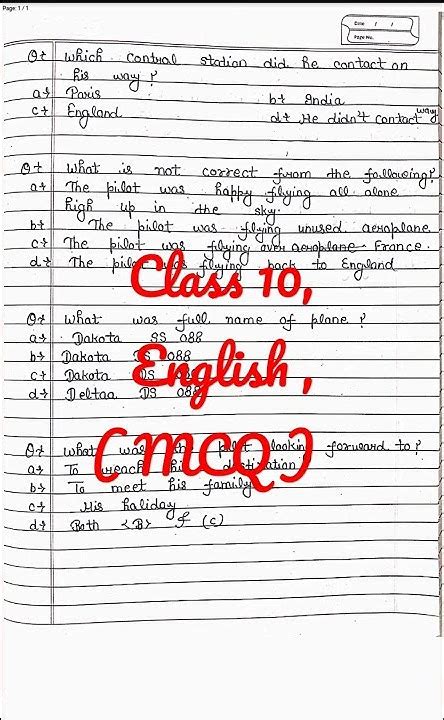 Page: 1 / 1
Date / /
Page No.
Q⇸ Which control station did he contact on
his way?
a⇸ Paris b⇸ India
c⇸ England d⇸ He didn't contact way
Q⇸ What is not correct from the following?
a⇸ The pilot was happy flying all alone
high up in the sky.
b⇸ The pilot was flying unused aeroplane
c⇸ The pilot was flying over aeroplane France.
d⇸ The pilot was flying back to England
Class 10,
Q⇸ What was full name of plane?
a⇸ Dakota SS 088
b⇸ Dakota DS 088
English,
c⇸ Dakota DS
d⇸ Deltaa DS 088
Q⇸ What was the pilot looking forward to?
(MCQ)
a⇸ To reach his destination
b⇸ To meet his family
c⇸ His haliday
d⇸ Both <B> & (c)